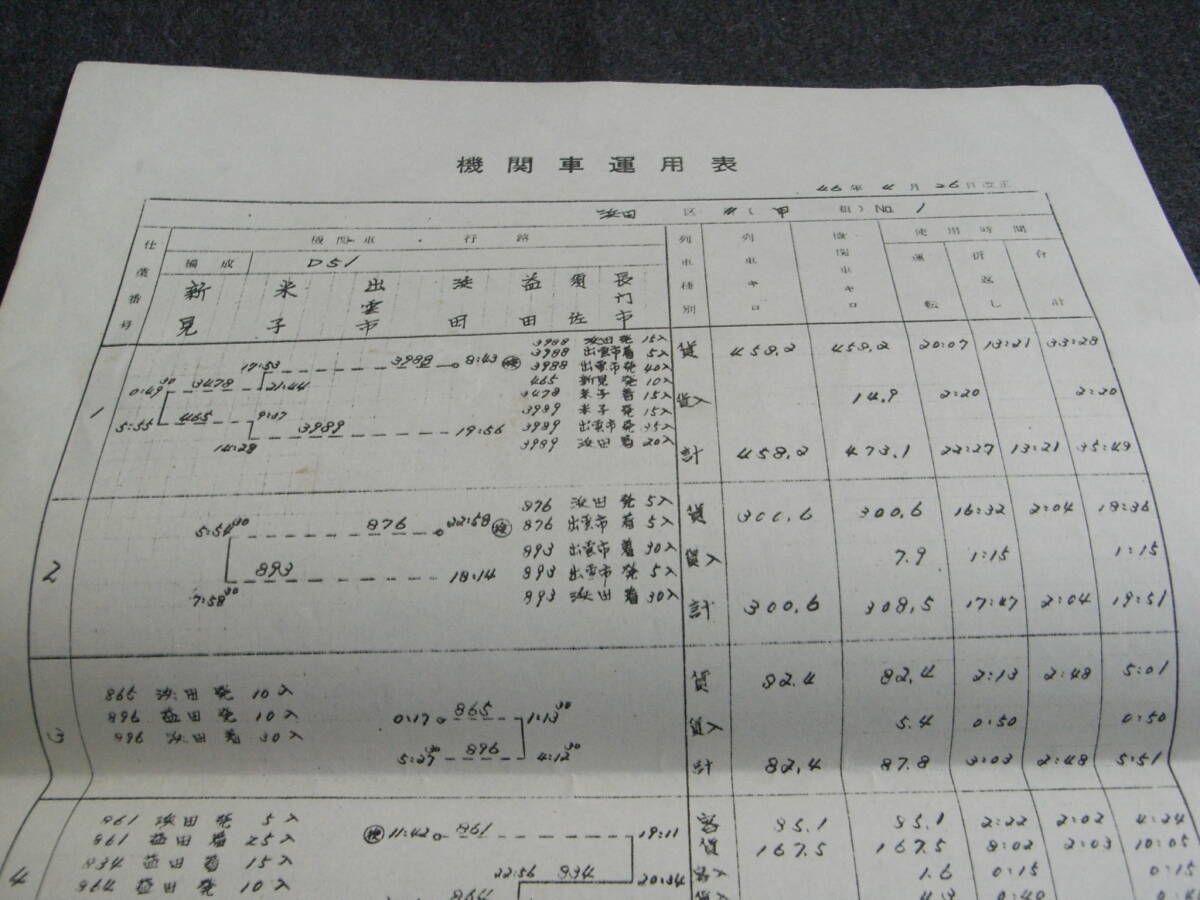 機関車運用表
46年4月26日改正
浜田 区 (甲 組) No 1
仕業番号 機関車・行路 列車種別 列車キロ 機関車キロ 使用時間
編成 D51 運転 折返し 合計
新見 米子 出雲市 浜田 益田 須佐 長門市
1
17:53 3988 8:43 検
0:49 30 3478 21:44
5:55 465 9:37
14:28 3989 19:56
3988 浜田発 15入
3988 出雲市着 5入
3988 出雲市発 40入
465 新見発 10入
3478 米子着 15入
3989 米子発 15入
3989 出雲市発 35入
3989 浜田着 20入
貨 458.2 458.2 20:07 13:21 33:28
貨入 14.9 2:20 2:20
計 458.2 473.1 22:27 13:21 35:49
2
5:54 30 876 22:58 検
893 18:14
7:58 30
876 浜田発 5入
876 出雲市着 5入
893 出雲市着 30入
893 出雲市発 5入
893 浜田着 30入
貨 300.6 300.6 16:32 2:04 18:36
貨入 7.9 1:15 1:15
計 300.6 308.5 17:47 2:04 19:51
3
865 浜田発 10入
896 益田発 10入
896 浜田着 30入
0:17 865 1:13 30
5:27 30 896 4:12 30
貨 82.4 82.4 2:13 2:48 5:01
貨入 5.4 0:50 0:50
計 82.4 87.8 3:03 2:48 5:51
4
861 浜田発 5入
861 益田着 25入
834 益田着 15入
864 益田発 10入
検 11:42 861 19:11
22:56 834 20:34
864
客 85.1 85.1 2:22 2:02 4:24
貨 167.5 167.5 8:02 2:03 10:05
客入 1.6 0:15 0:15
貨入